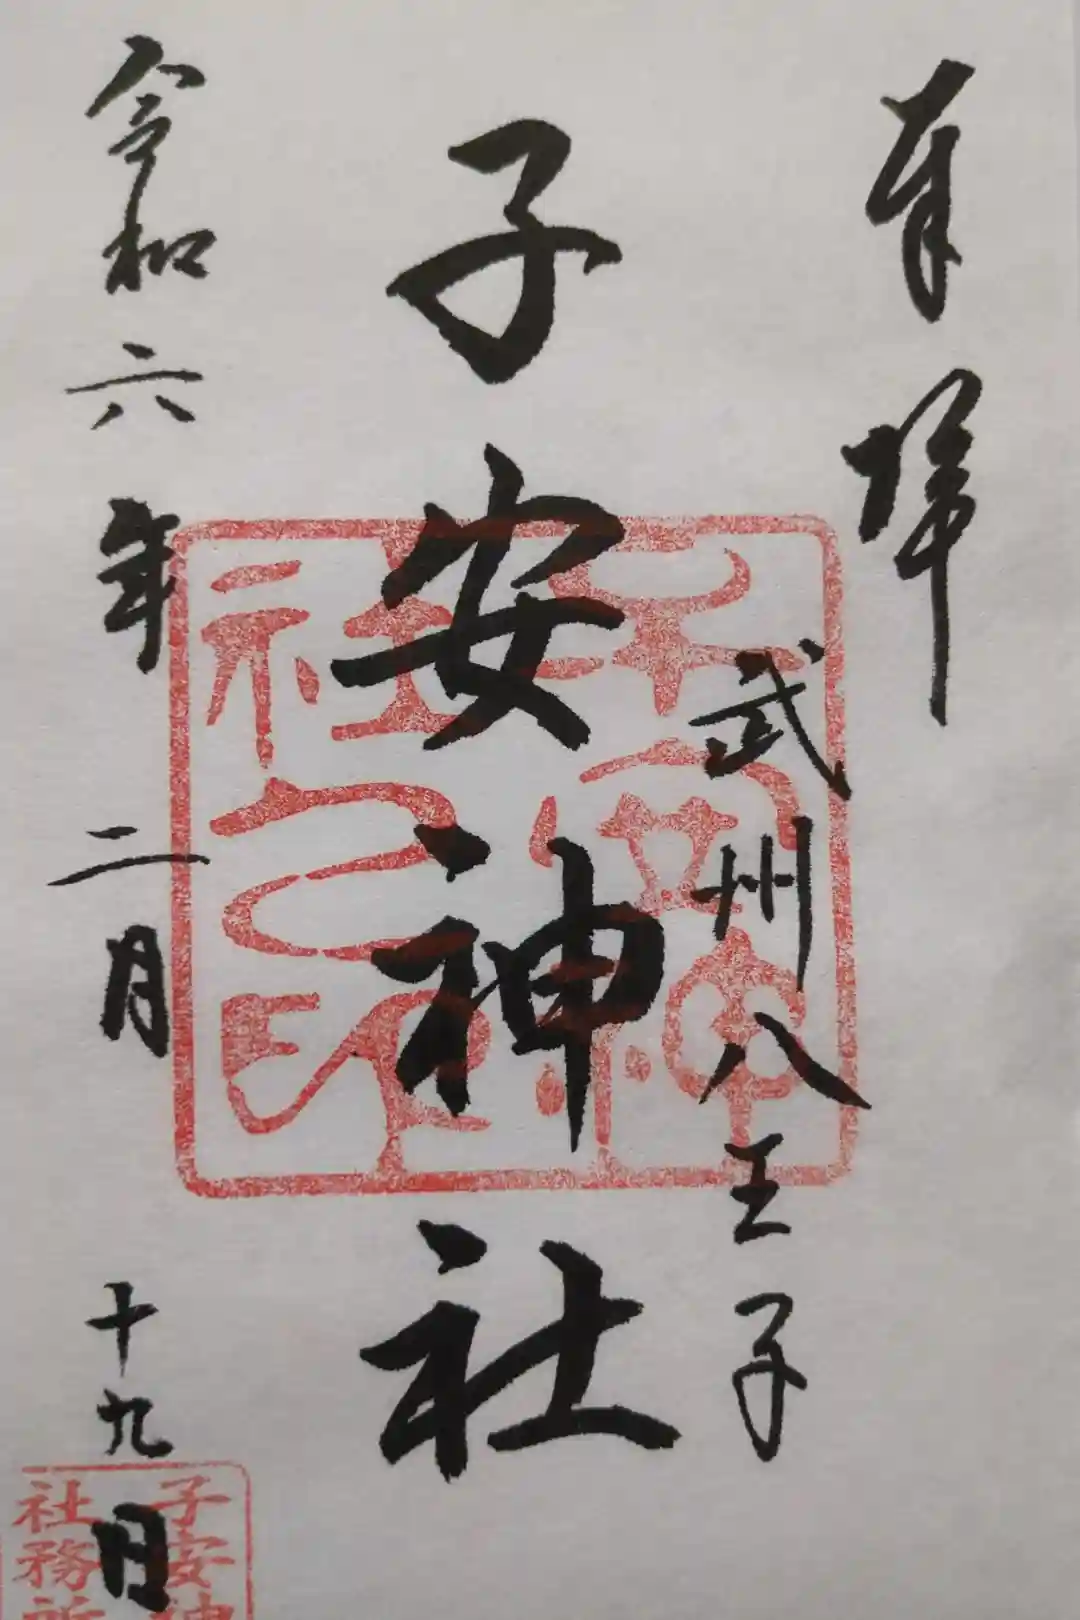 奉拝
武州八王子
子安神社
令和六年二月十九日
子安神社之印
子安神
社務所